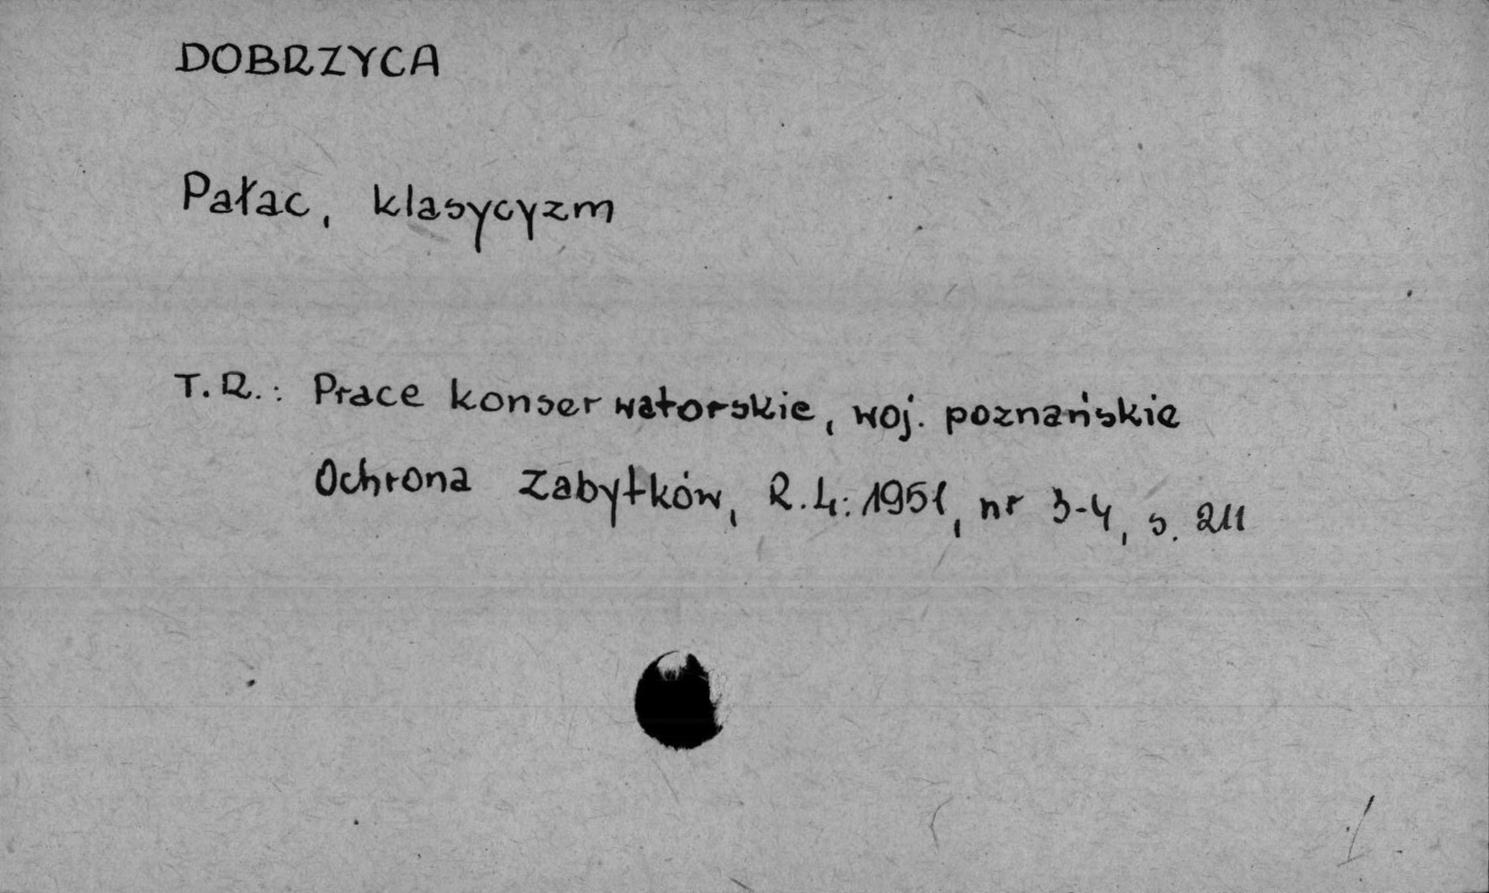 DOBRZYCA
Pałac, klasycyzm
T.R.: Prace konserwatorskie, woj. poznańskie
Ochrona Zabytków, R.4:1951, nr 3-4, s. 211